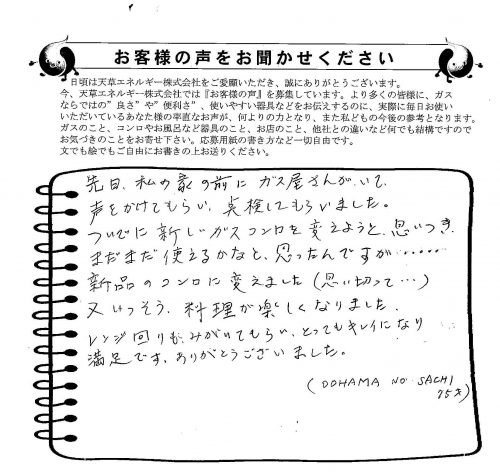 お客様の声をお聞かせください
日頃は天草エネルギー株式会社をご愛顧いただき、誠にありがとうございます。
今、天草エネルギー株式会社では『お客様の声』を募集しています。より多くの皆様に、ガス
ならではの”良さ”や”便利さ”、使いやすい器具などをお伝えするのに、実際に毎日お使い
いただいているあなた様の率直なお声が、何よりの力となり、また私どもの今後の参考となります。
ガスのこと、コンロやお風呂など器具のこと、お店のこと、他社との違いなど何でも結構ですので
お気づきのことをお寄せ下さい。応募用紙の書き方など一切自由です。
文でも絵でもご自由にお書きの上お送りください。
先日、私の家の前にガス屋さんがいて、
声をかけてもらい、点検してもらいました。
ついでに新しいガスコンロを変えようと、思いつき、
まだまだ使えるかなと、思ったんですが······
新品のコンロに変えました(思い切って…)
又いっそう、料理が楽しくなりました。
レンジ回りも、みがいてもらい、とってもキレイになり
満足です。ありがとうございました。
(DOHAMA NO SACHI
75才)